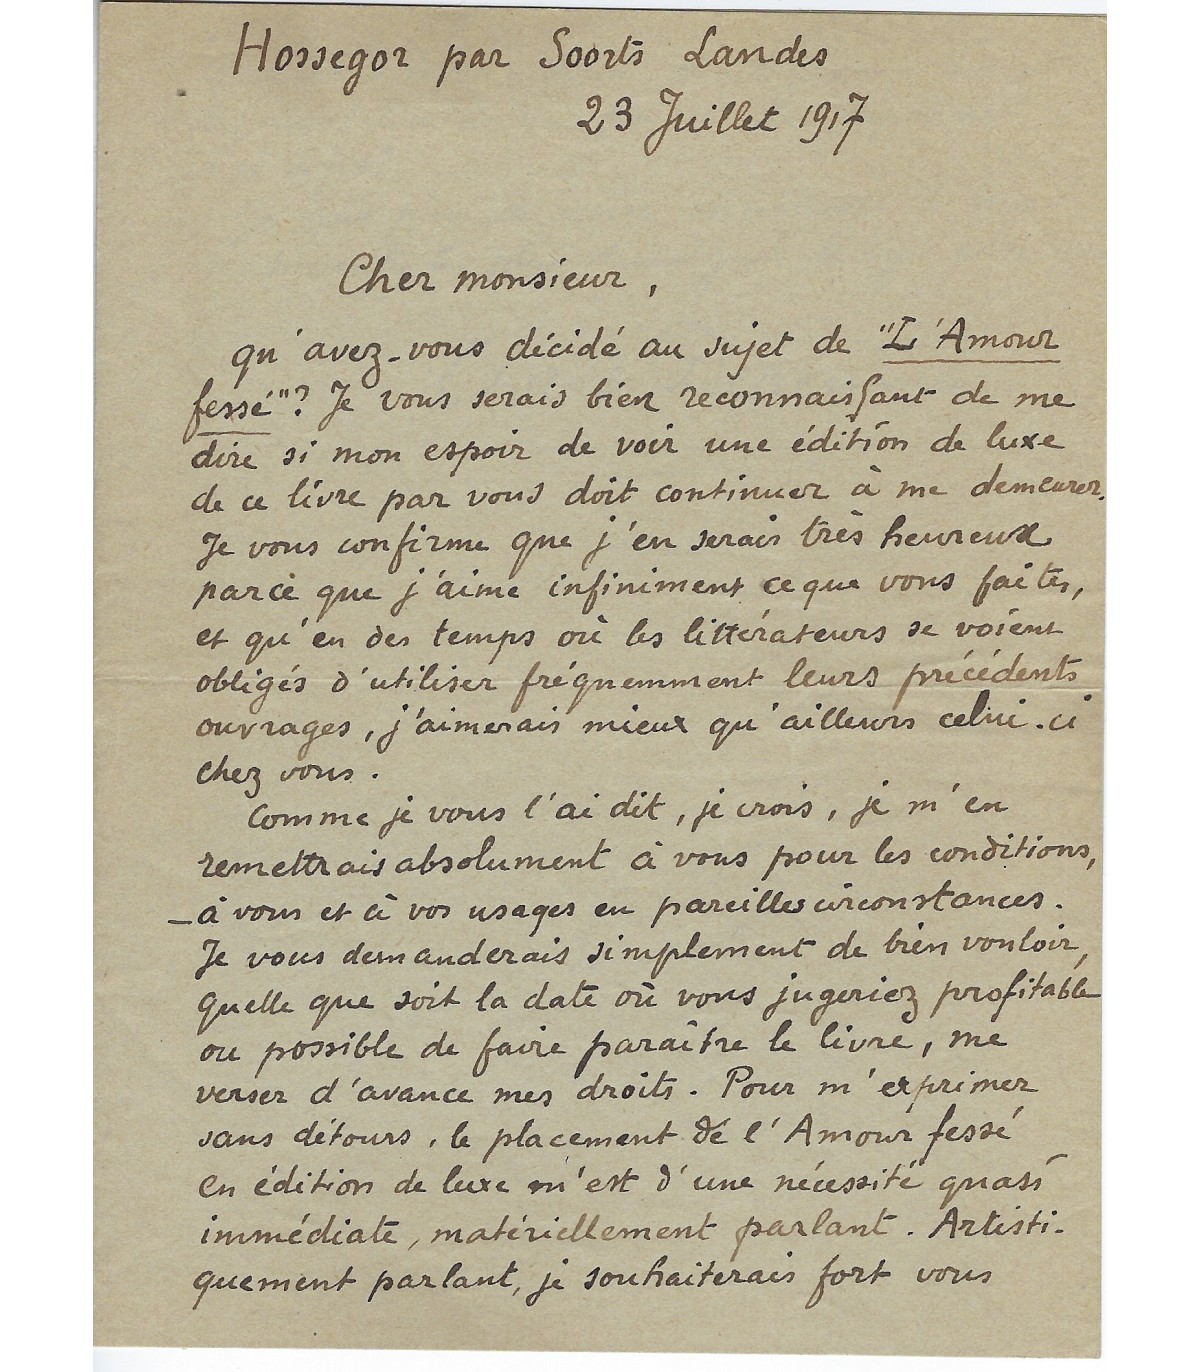 Hossegor par Soorts Landes
23 Juillet 1917
Cher monsieur,
qu'avez-vous décidé au sujet de "L'Amour
fessé"? Je vous serais bien reconnaissant de me
dire si mon espoir de voir une édition de luxe
de ce livre par vous doit continuer à me demeurer.
Je vous confirme que j'en serais très heureux
parce que j'aime infiniment ce que vous faites,
et qu'en des temps où les littérateurs se voient
obligés d'utiliser fréquemment leurs précédents
ouvrages, j'aimerais mieux qu'ailleurs celui-ci
chez vous.
Comme je vous l'ai dit, je crois, je m'en
remettrais absolument à vous pour les conditions,
_ à vous et à vos usages en pareilles circonstances.
Je vous demanderais simplement de bien vouloir,
quelle que soit la date où vous jugeriez profitable
ou possible de faire paraître le livre, me
verser d'avance mes droits. Pour m'exprimer
sans détours, le placement de l'Amour fessé
en édition de luxe m'est d'une nécessité quasi
immédiate, matériellement parlant. Artisti-
quement parlant, je souhaiterais fort vous